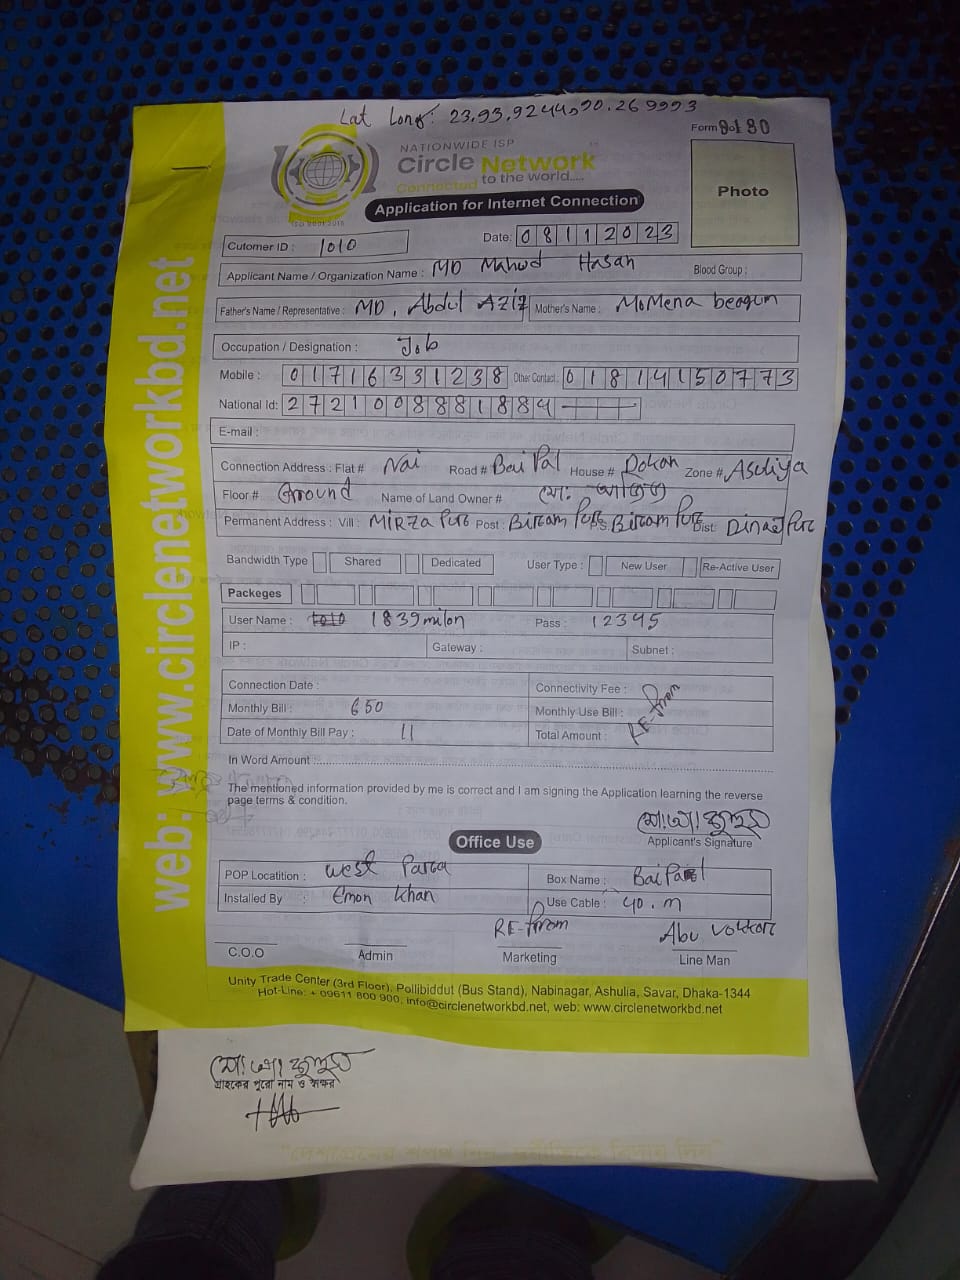 Lat Long: 23.93.9244,90.269993
Form No. 9180
NATIONWIDE ISP
Circle Network
Connected to the world.....
ISO 9001:2015
Application for Internet Connection
Photo
Cutomer ID : 1010
Date: 08112023
Applicant Name / Organization Name : MD Mahud Hasan Blood Group :
Father's Name / Representative : MD. Abdul Aziz Mother's Name : MoMena beogum
Occupation / Designation : Job
Mobile : 01716331238 Other Contact : 01814150773
National Id: 2721008881884
E-mail :
Connection Address : Flat # Nai Road # Bai Pal House # Dokan Zone # Asuliya
Floor # Ground Name of Land Owner # মো:
Permanent Address : Vill : MIRZA PUR Post : BiRam PUR P.S: BiRam PUR Dist: DinajPUR
Bandwidth Type Shared Dedicated User Type : New User Re-Active User
Packeges
User Name : 1010 1839milon Pass : 12345
IP : Gateway : Subnet :
Connection Date : Connectivity Fee :
Monthly Bill : 650 Monthly Use Bill :
Date of Monthly Bill Pay : 11 Total Amount :
RE-from
In Word Amount :
The mentioned information provided by me is correct and I am signing the Application learning the reverse
page terms & condition.
Applicant's Signature
Office Use
POP Locatition : west Para Box Name : Bai Pal
Installed By : Emon Khan Use Cable : 40.m
RE-from Abu
C.O.O Admin Marketing Line Man
Unity Trade Center (3rd Floor), Pollibiddut (Bus Stand), Nabinagar, Ashulia, Savar, Dhaka-1344
Hot-Line: + 09611 800 900, info@circlenetworkbd.net, web: www.circlenetworkbd.net
web: www.circlenetworkbd.net
গ্রাহকের পুরো নাম ও স্বাক্ষর